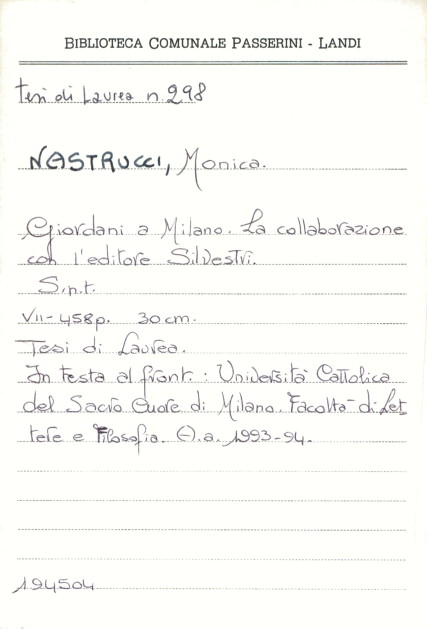 BIBLIOTECA COMUNALE PASSERINI - LANDI
Tesi di Laurea n. 298
NASTRUCCI, Monica.
Giordani a Milano. La collaborazione
con l'editore Silvestri.
S.n.t.
VII-458p. 30 cm.
Tesi di Laurea.
In testa al front.: Università Cattolica
del Sacro Cuore di Milano. Facoltà di Let
tere e Filosofia. A.a. 1993-94.
194504